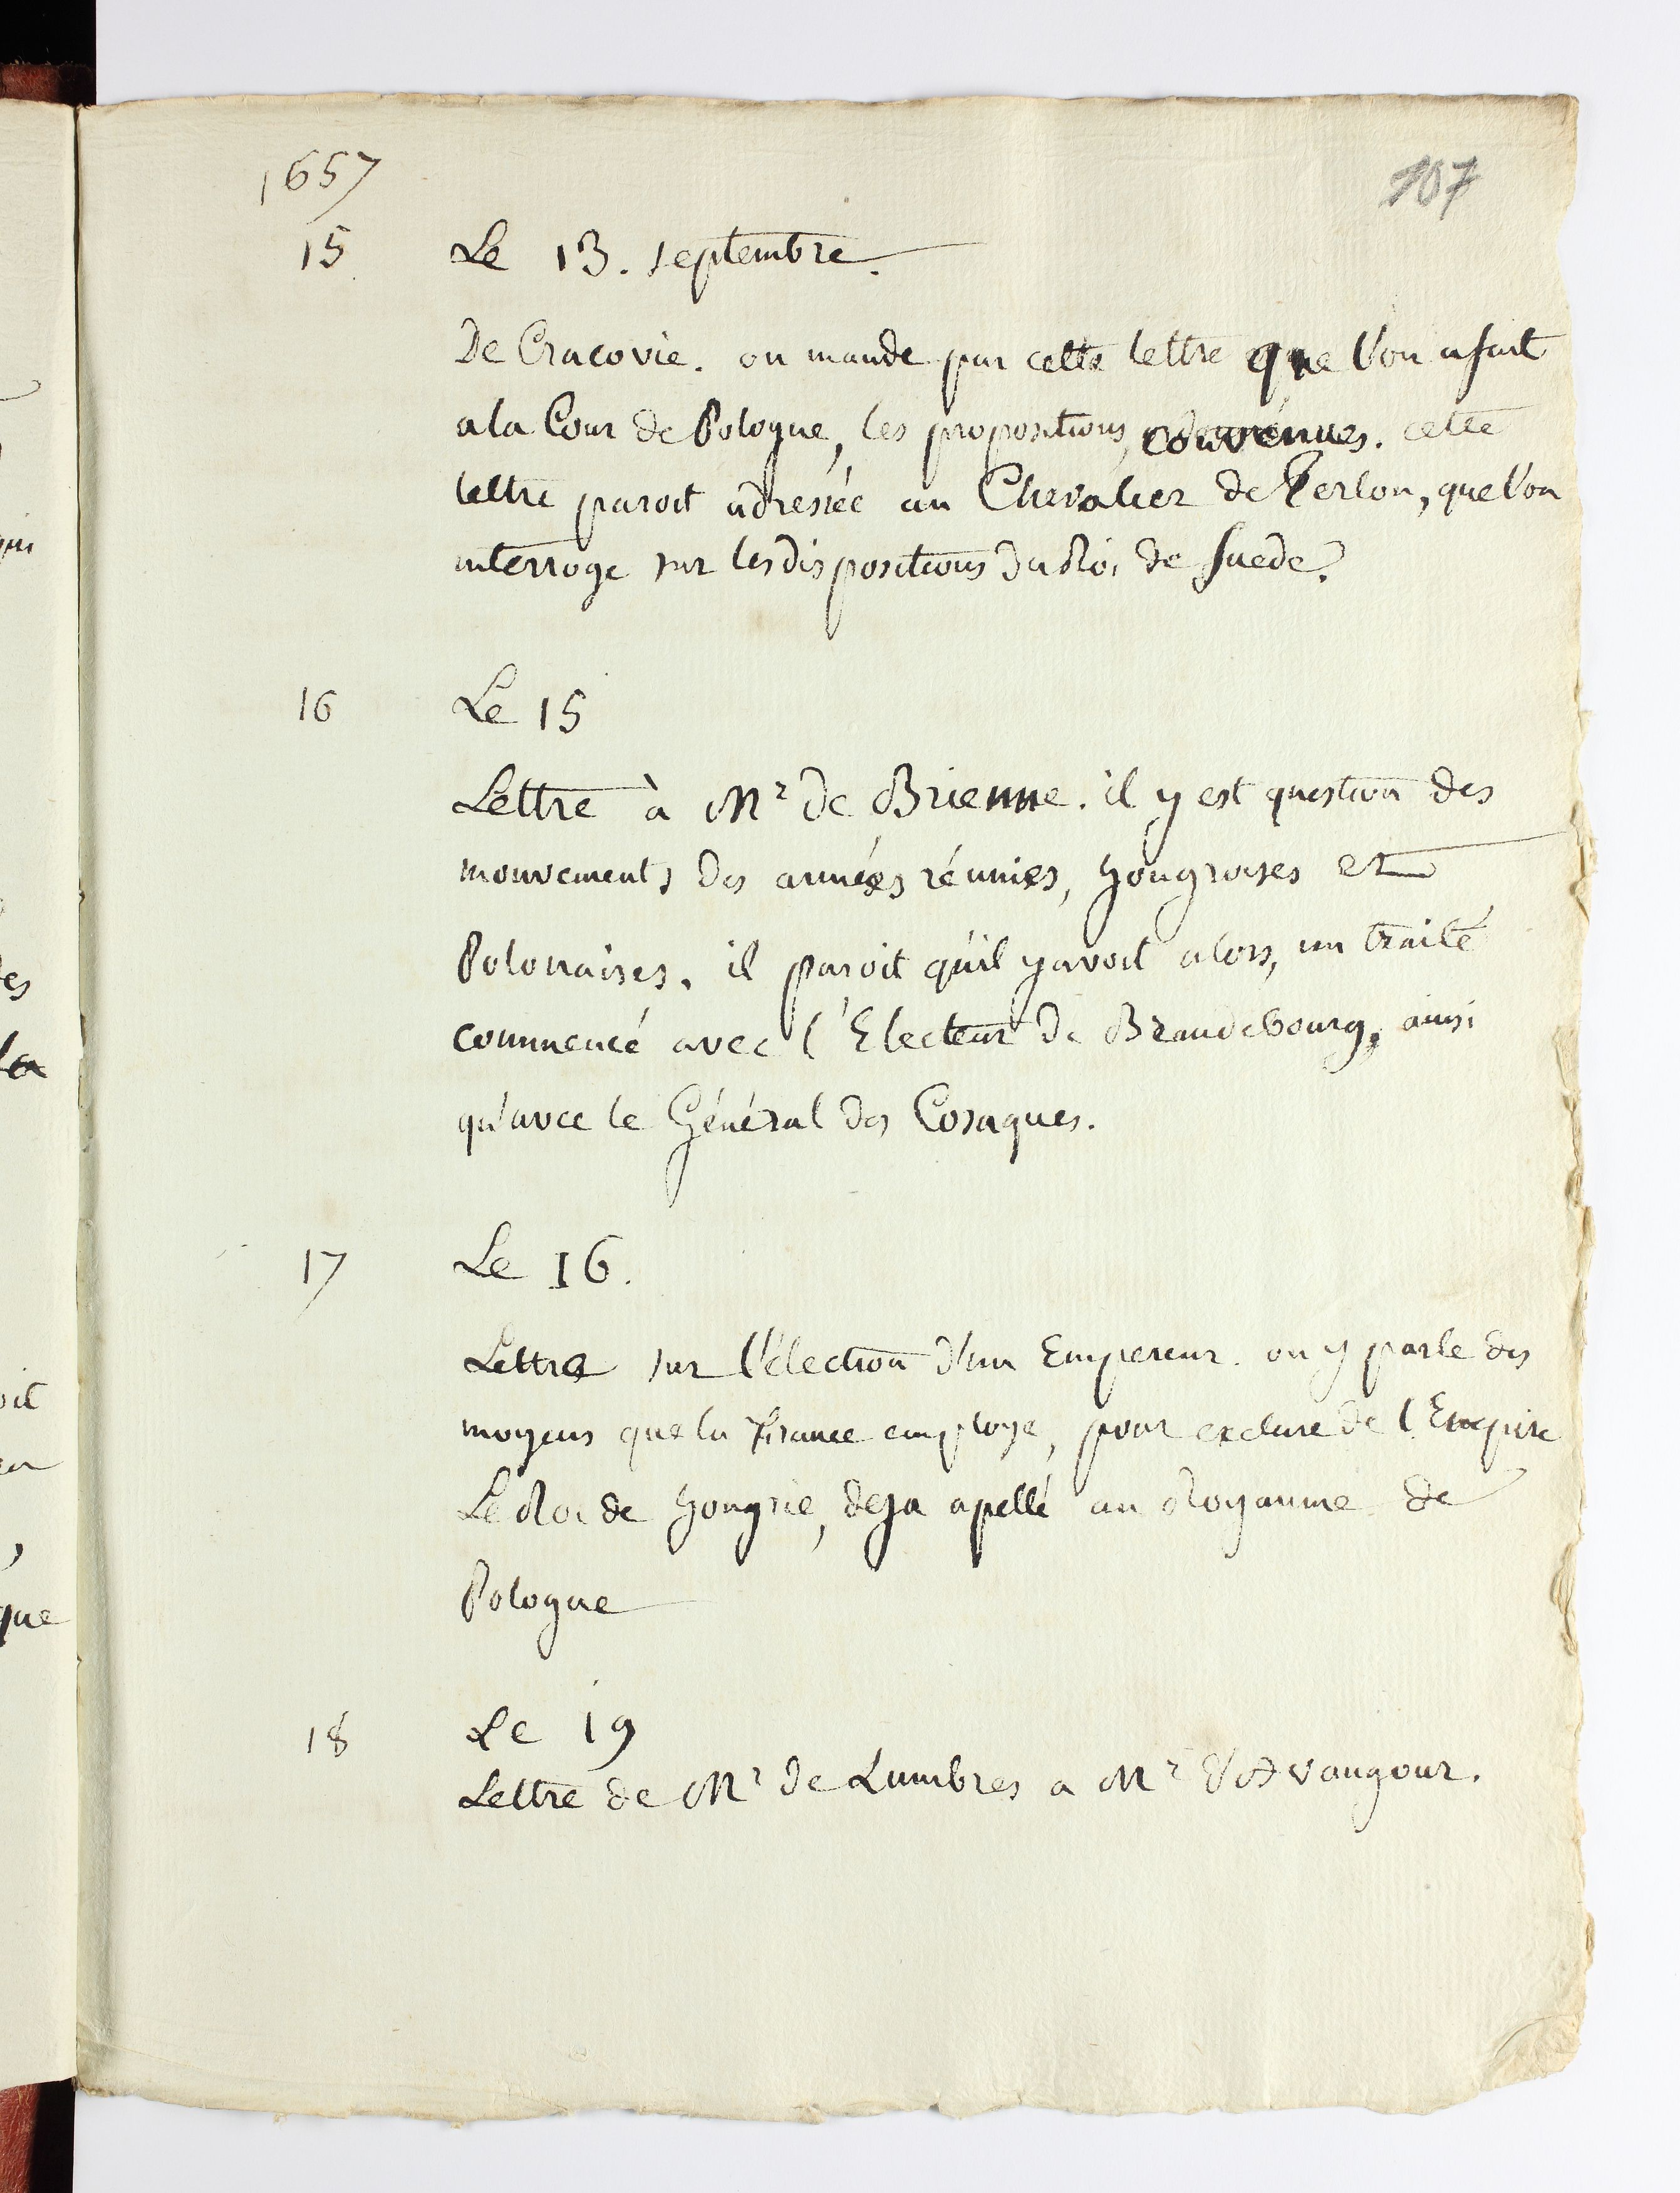 1657
107
15 Le 13. septembre.
De Cracovie. on mande par cette lettre que l'on a fait
a la Cour de Pologne, les propositions, convénues. cette
lettre paroit adressée au Chevalier de Terlon, que l'on
interroge sur les dispositions du Roi de Suede.
16 Le 15
Lettre à Mr de Brienne. il y est question des
mouvements des armées réunies, hongroises et
Polonaises. il paroit qu'il y avoit alors, un traité
commencé avec l'Electeur de Brandebourg, ainsi
qu'avec le Général des Cosaques.
17 Le 16.
Lettre sur l'élection d'un Empereur. on y parle des
moyens que la France employe, pour exclure de l'Empire
Le Roi de hongrie, deja apellé au Royaume de
Pologne
18 Le 19
Lettre de Mr de Lumbres a Mr d'Avaugour.
qui
es
la
oit
que